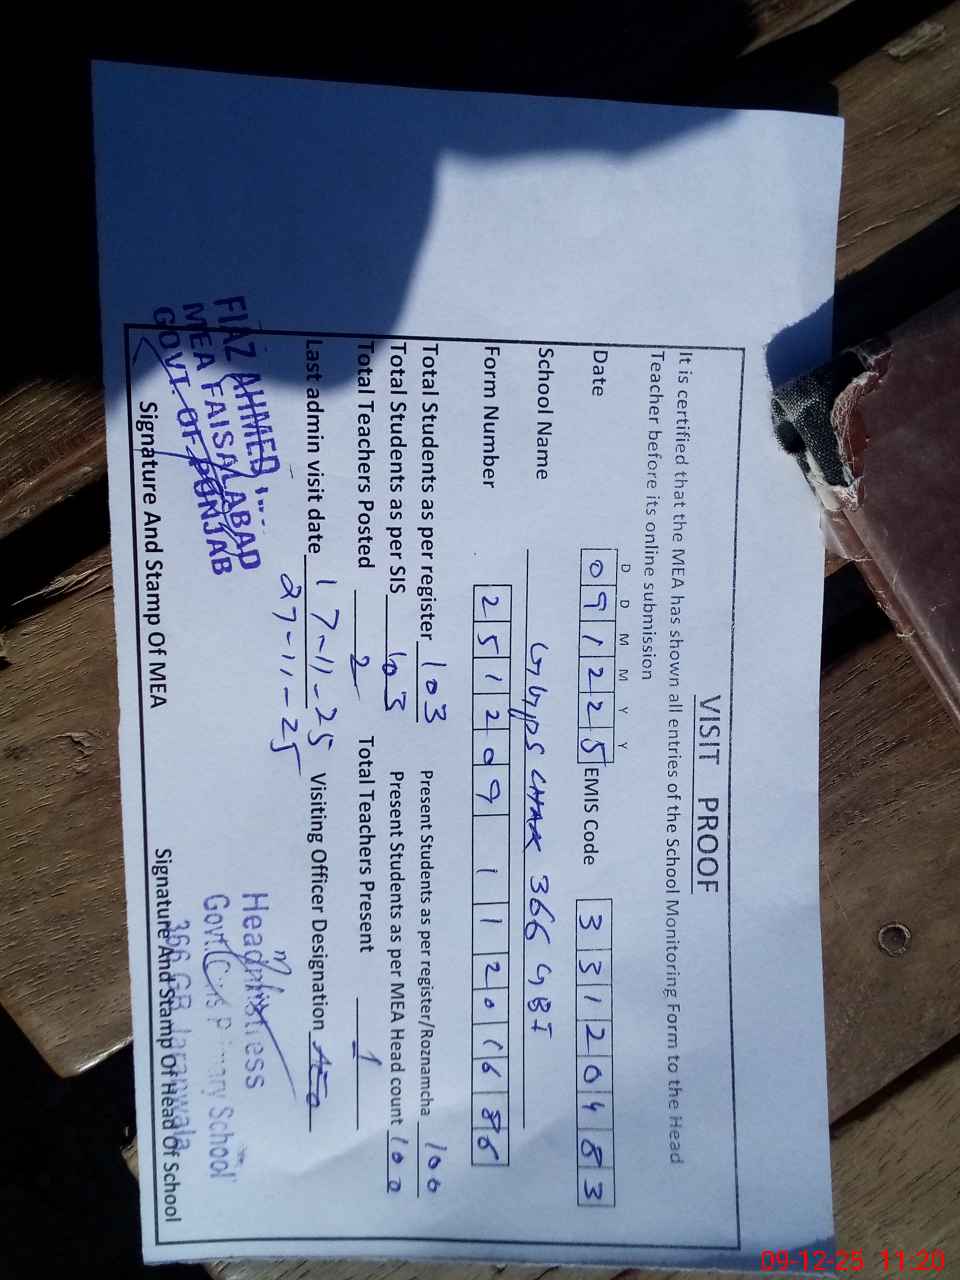 VISIT PROOF
It is certified that the MEA has shown all entries of the School Monitoring Form to the Head
Teacher before its online submission
D D M M Y Y
Date 0 9 1 2 2 5 EMIS Code 3 3 1 2 0 4 8 3
School Name GGPS CHAK 366 GB I
Form Number 2 5 1 2 0 9 1 1 2 0 1 6 8 6
Total Students as per register 103 Present Students as per register/Roznamcha 100
Total Students as per SIS 103 Present Students as per MEA Head count 100
Total Teachers Posted 2 Total Teachers Present 1
Last admin visit date 17-11-25 Visiting Officer Designation AEO
27-11-25
FIAZ AHMED
MEA FAISALABAD
GOVT. OF PUNJAB
Headmistress
Govt. Girls Primary School
366 GB Jaranwala
Signature And Stamp Of MEA Signature And Stamp Of Head Of School
09-12-25 11:20